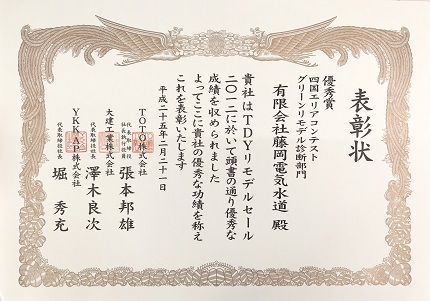 表彰状
優秀賞
四国エリアコンテスト
グリーンリモデル診断部門
有限会社藤岡電気水道 殿
貴社はTDYリモデルセール
二〇一二に於いて頭書の通り優秀な
成績を収められました
よってここに貴社の優秀な功績を称え
これを表彰いたします
平成二十五年二月二十一日
TOTO株式会社
代表取締役
社長執行役員
張本邦雄
大建工業株式会社
代表取締役社長
澤木良次
YKK AP株式会社
代表取締役社長
堀 秀充